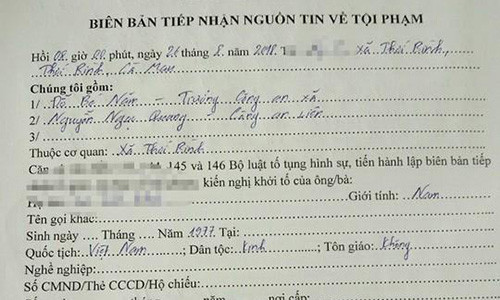 BIÊN BẢN TIẾP NHẬN NGUỒN TIN VỀ TỘI PHẠM
Hồi 08 giờ 00 phút, ngày 26 tháng 8 năm 2018. T xã Thới Bình,
Thới Bình, Cà Mau
Chúng tôi gồm:
1/ Năm - Trưởng Công an xã
2/ Nguyễn Ngọc Quang - Công an viên
3/
Thuộc cơ quan: xã Thới Bình
Căn 145 và 146 Bộ luật tố tụng hình sự, tiến hành lập biên bản tiếp
kiến nghị khởi tố của ông/bà:
Họ Giới tính: Nam
Tên gọi khác:
Sinh ngày .... Tháng .... Năm 1977 Tại:
Quốc tịch: Việt Nam; Dân tộc: Kinh; Tôn giáo: Không
Nghề nghiệp:
Số CMND/Thẻ CCCD/Hộ chiếu:
năm nơi cấp: